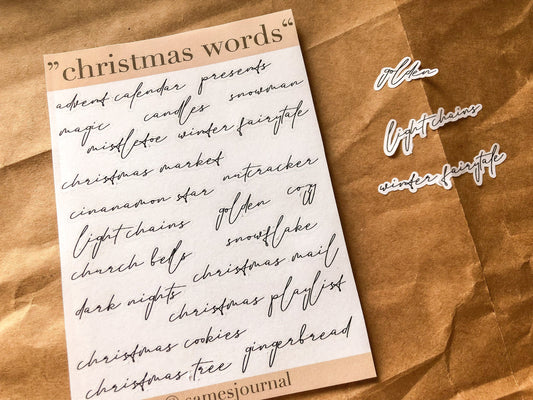 ”christmas words“
advent calendar presents
magic candles snowman
mistletoe winter fairytale
christmas market
cinanamon star nutcracker
light chains golden cozy
church bells snowflake
dark nights christmas mail
christmas playlist
christmas cookies
christmas tree gingerbread
@samesjournal
golden
light chains
winter fairytale